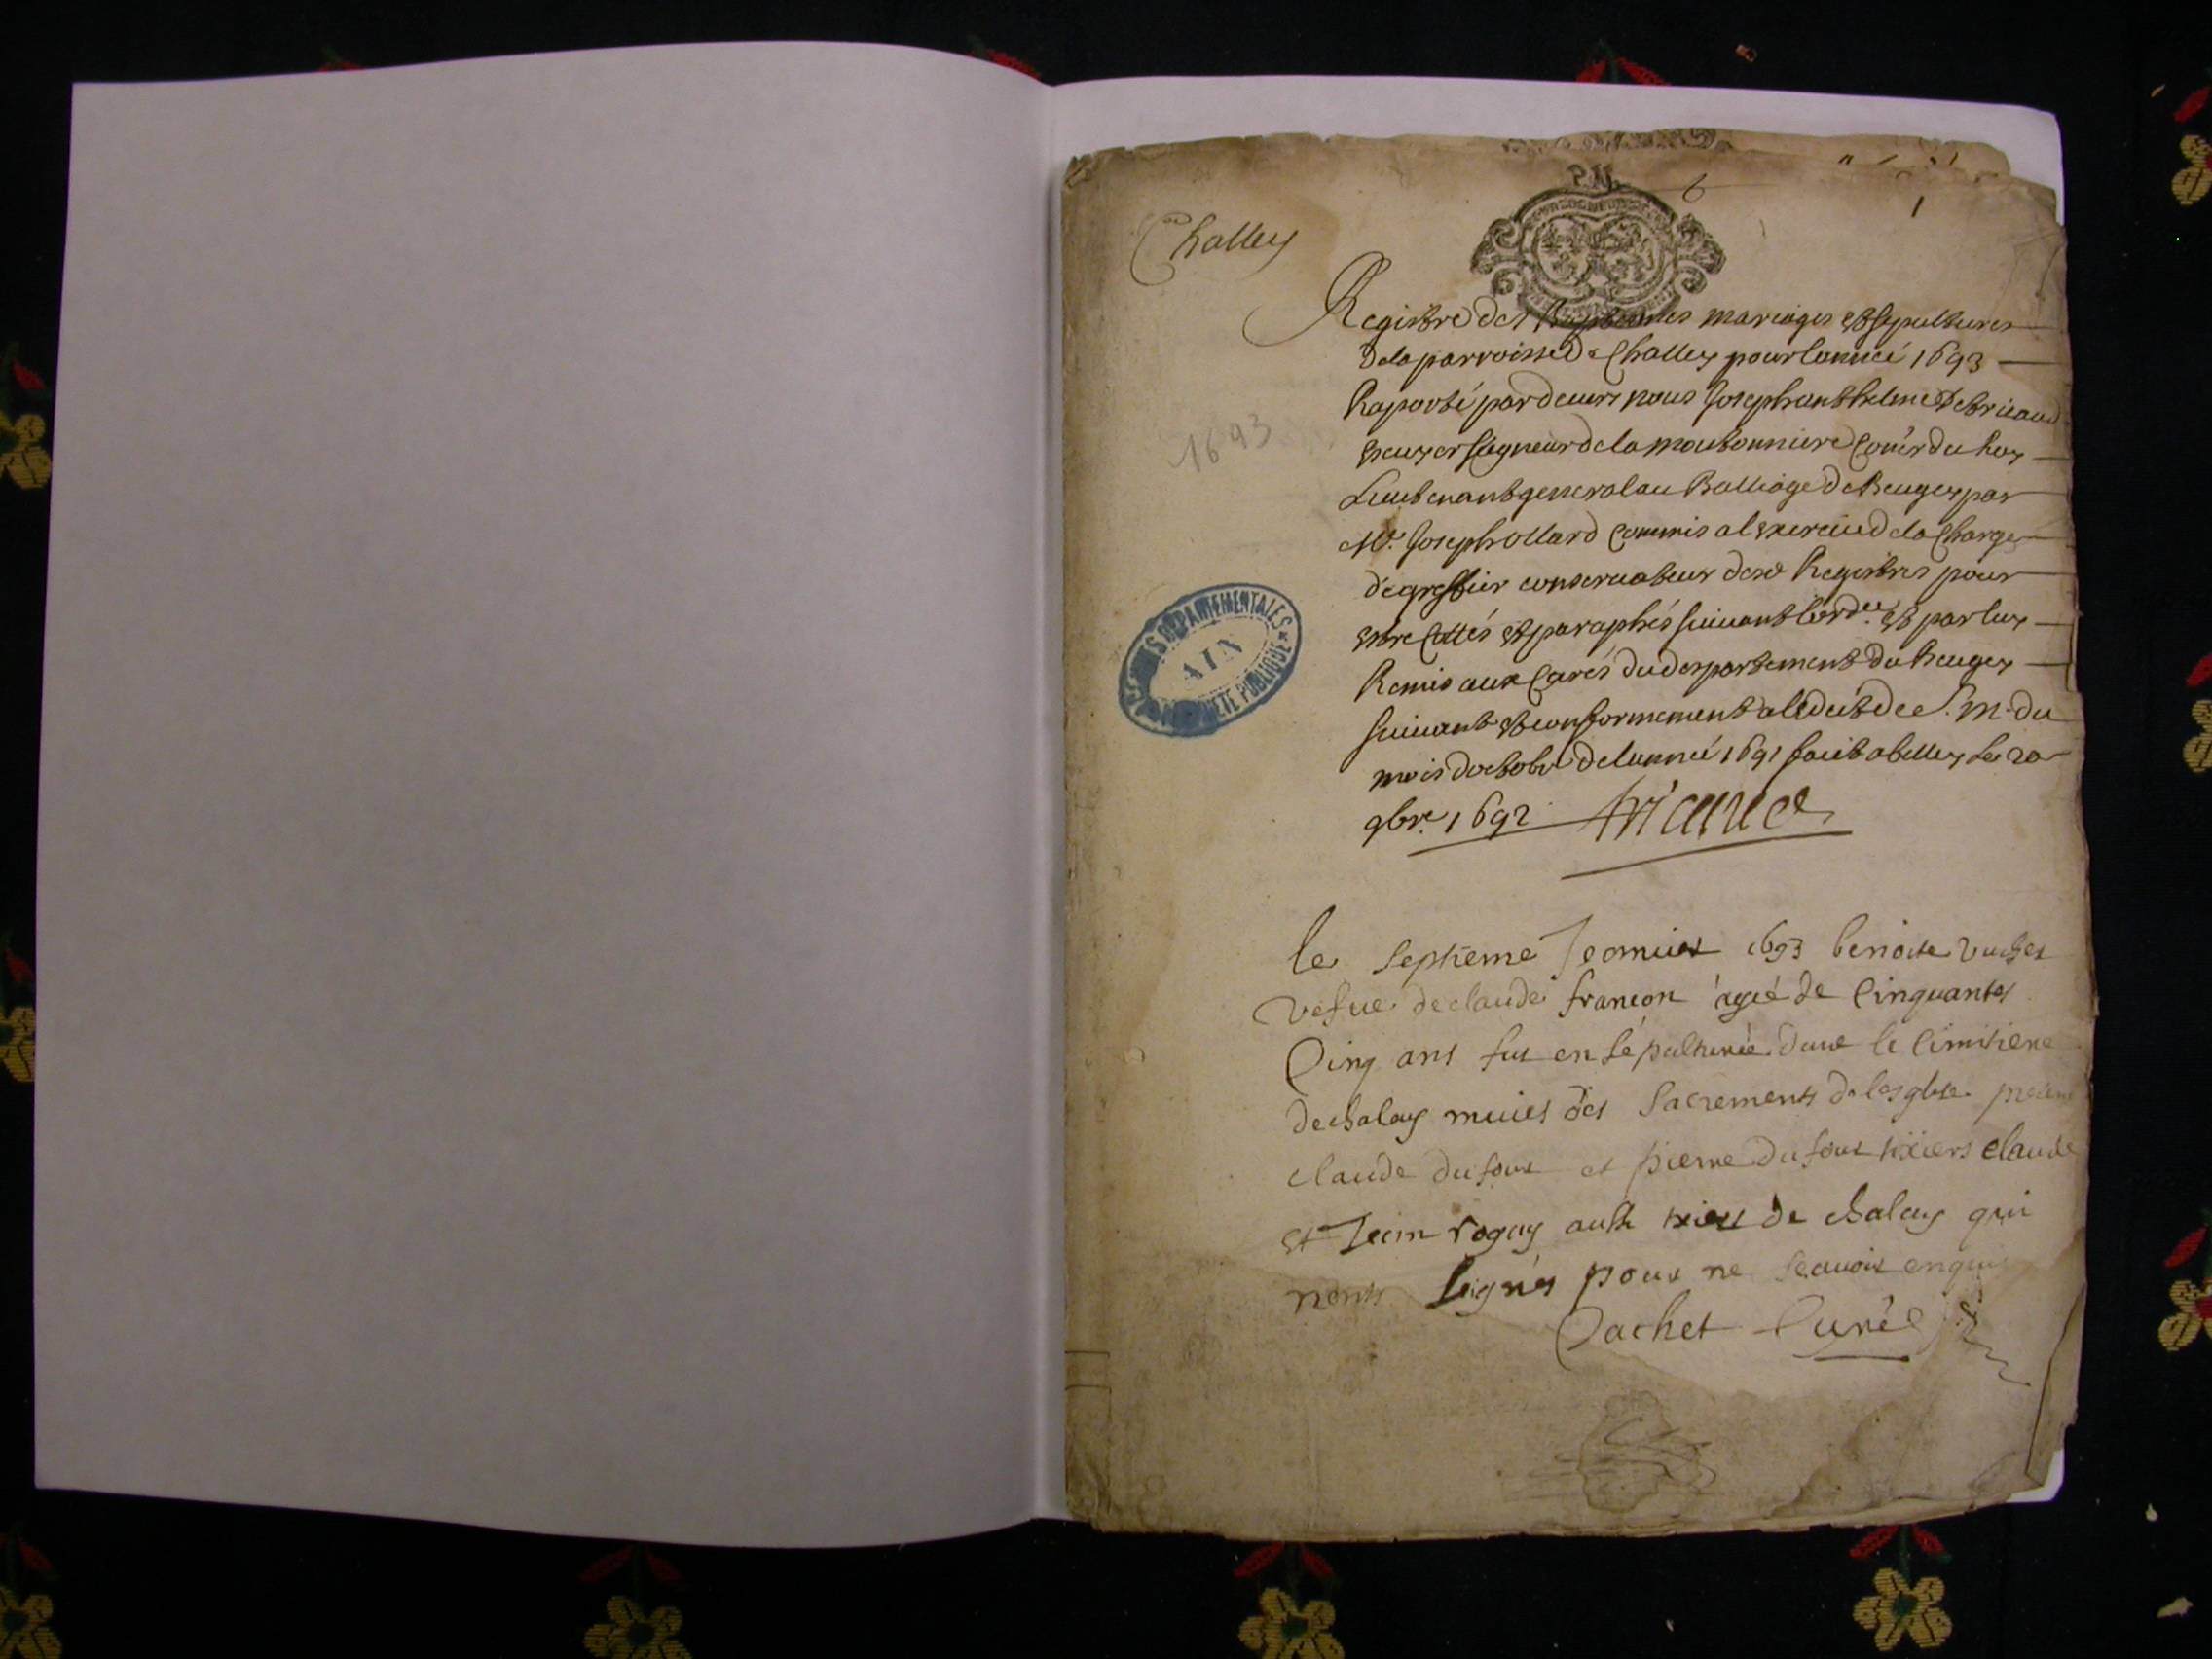 Challey
6
1
Registre des Baptesmes mariages et sepultures
de la parroisse de Challey pour lannee 1693
Raporté pardevers nous Joseph anthelme De briaud
escuyer seigneur de la moutonniere Coner du Roy
Lieutenant general au Balliage de Beugey par
Mr. Joseph Ollard Commis a lexercice de la Charge
de greffier conservateur desd Registres pour
estre Cottés et paraphés suivant lordce. et par luy
Remis aux Curés du despartement du Beugey
suivant et conformement a ledict de S. M. du
mois doctobre de lannee 1691 faict a belley le 20
9bre. 1692
1693
ARCHIVES DÉPARTEMENTALES
AIN
PROPRIÉTÉ PUBLIQUE
le septieme Jeanvier 1693 benoite
vefve de claude francon agié de Cinquante
Cinq ans fut en sepulturée dans le Cimitiere
de chaley munies des Sacrements de lesglise
claude dufour et pierre dufour tixiers claude
et Jean rogay tixier de chaley qui
nonts signés pour ne scavoir enquis
Cachet Curé